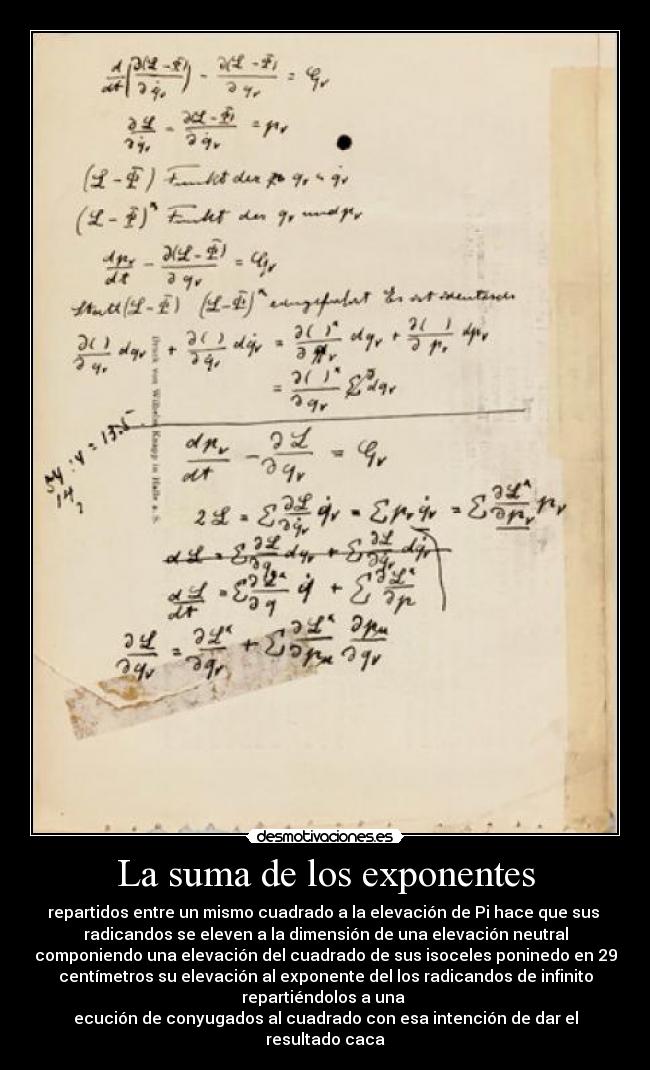 d/dt (∂(L - Φ)/∂q̇ᵥ) - ∂(L - Φ)/∂qᵥ = Gᵥ
∂L/∂q̇ᵥ - ∂(L - Φ)/∂q̇ᵥ = pᵥ
(L - Φ) Funkt der qᵥ u q̇ᵥ
(L - Φ)* Funkt der qᵥ und pᵥ
dpᵥ/dt - ∂(L - Φ)/∂qᵥ = Gᵥ
Statt (L - Φ) (L - Φ)* eingeführt Es ist identisch
∂( )/∂qᵥ dqᵥ + ∂( )/∂q̇ᵥ dq̇ᵥ = ∂( )*/∂qᵥ dqᵥ + ∂( )/∂pᵥ dpᵥ
= ∂( )*/∂qᵥ dqᵥ
Druck von Wilhelm Knapp in Halle a. S.
54 : 4 = 13.5
14
dpᵥ/dt - ∂L/∂qᵥ = Gᵥ
2L = Σ ∂L/∂q̇ᵥ q̇ᵥ = Σ pᵥ q̇ᵥ = Σ ∂L*/∂pᵥ pᵥ
dL = Σ ∂L/∂qᵥ dqᵥ + Σ ∂L/∂q̇ᵥ dq̇ᵥ
dL/dt = Σ ∂L*/∂q q̇ + Σ ∂L*/∂p
∂L/∂qᵥ = ∂L*/∂qᵥ + Σ ∂L*/∂pμ ∂pμ/∂qᵥ
desmotivaciones.es
La suma de los exponentes
repartidos entre un mismo cuadrado a la elevación de Pi hace que sus
radicandos se eleven a la dimensión de una elevación neutral
componiendo una elevación del cuadrado de sus isoceles poninedo en 29
centímetros su elevación al exponente del los radicandos de infinito
repartiéndolos a una
ecución de conyugados al cuadrado con esa intención de dar el
resultado caca